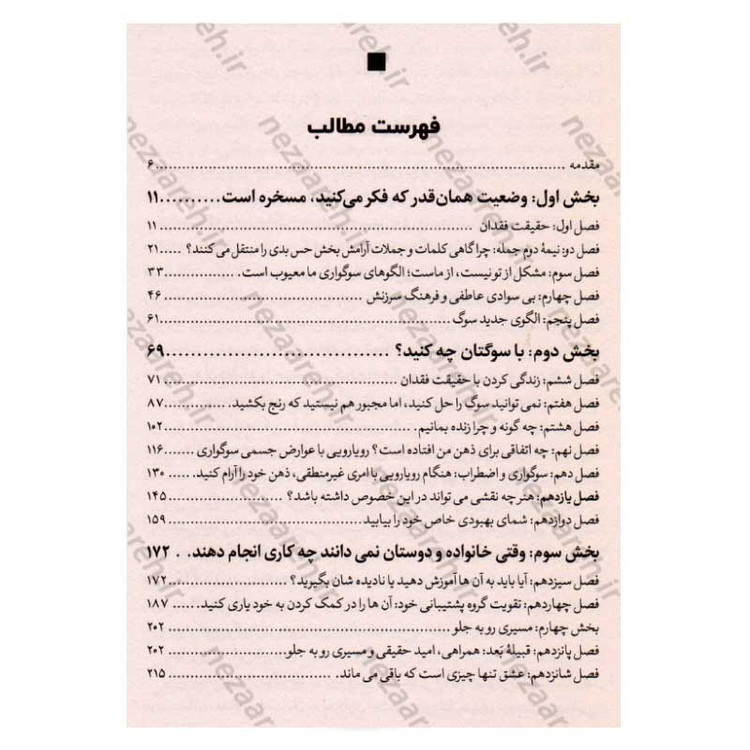 فهرست مطالب
مقدمه ........ ۶
بخش اول: وضعیت همان‌قدر که فکر می‌کنید، مسخره است .......... ۱۱
فصل اول: حقیقت فقدان ........ ۱۱
فصل دو: نیمهٔ دوم جمله: چرا گاهی کلمات و جملات آرامش بخش حس بدی را منتقل می‌کنند؟ ... ۲۱
فصل سوم: مشکل از تو نیست، از ماست؛ الگوهای سوگواری ما معیوب است. ........ ۳۳
فصل چهارم: بی سوادی عاطفی و فرهنگ سرزنش ........ ۴۶
فصل پنجم: الگوی جدید سوگ ........ ۶۱
بخش دوم: با سوگتان چه کنید؟ ........ ۶۹
فصل ششم: زندگی کردن با حقیقت فقدان ........ ۷۱
فصل هفتم: نمی توانید سوگ را حل کنید، اما مجبور هم نیستید که رنج بکشید. ........ ۸۷
فصل هشتم: چه گونه و چرا زنده بمانیم. ........ ۱۰۲
فصل نهم: چه اتفاقی برای ذهن من افتاده است؟ رویارویی با عوارض جسمی سوگواری ...... ۱۱۶
فصل دهم: سوگواری و اضطراب: هنگام رویارویی با امری غیرمنطقی، ذهن خود را آرام کنید. ..... ۱۳۰
فصل یازدهم: هنر چه نقشی می تواند در این خصوص داشته باشد؟ ........ ۱۴۵
فصل دوازدهم: شمای بهبودی خاص خود را بیابید ........ ۱۵۹
بخش سوم: وقتی خانواده و دوستان نمی دانند چه کاری انجام دهند. . . ۱۷۲
فصل سیزدهم: آیا باید به آن ها آموزش دهید یا نادیده شان بگیرید؟ ........ ۱۷۲
فصل چهاردهم: تقویت گروه پشتیبانی خود: آن ها را در کمک کردن به خود یاری کنید. ..... ۱۸۷
بخش چهارم: مسیری رو به جلو ........ ۲۰۲
فصل پانزدهم: قبیلهٔ بَعد: همراهی، امید حقیقی و مسیری رو به جلو ........ ۲۰۲
فصل شانزدهم: عشق تنها چیزی است که باقی می ماند. ........ ۲۱۵
nezaareh.ir